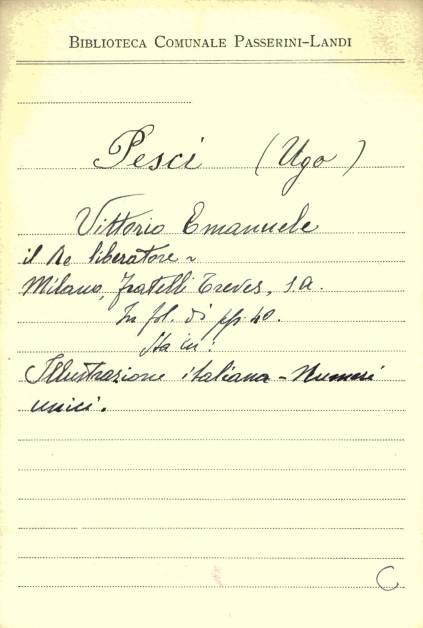 BIBLIOTECA COMUNALE PASSERINI-LANDI
Pesci (Ugo)
Vittorio Emanuele
il Re liberatore ~
Milano, Fratelli Treves, s.a.
In fol. di pp. 40.
Sta in:
Illustrazione italiana - Numeri
unici.
C